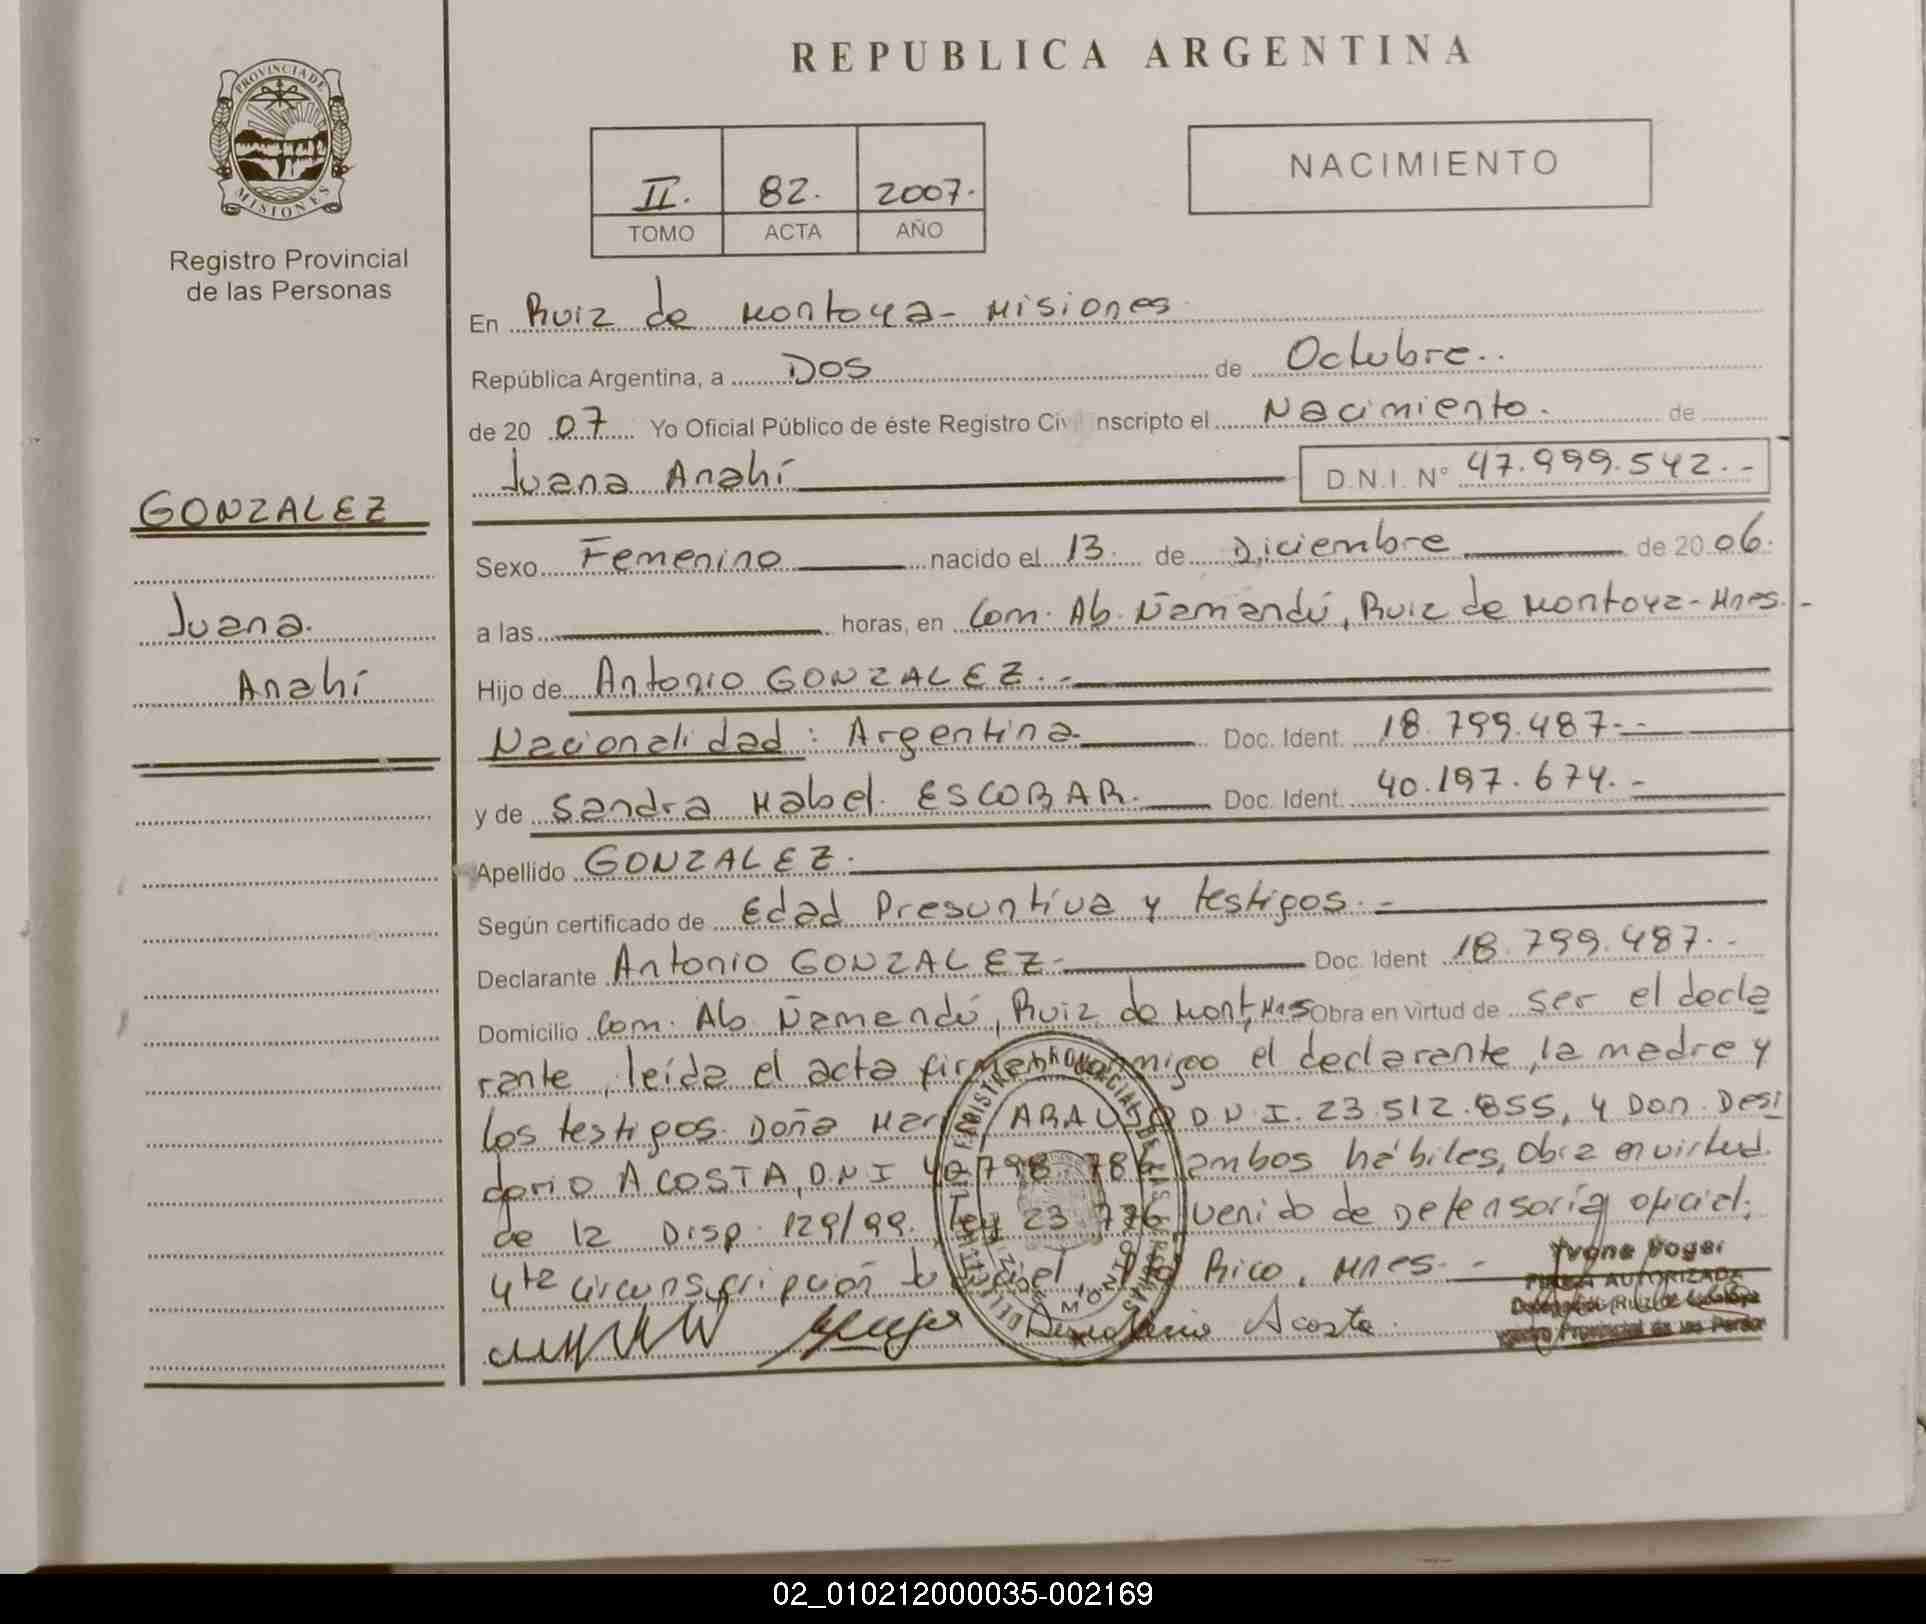 REPUBLICA ARGENTINA
PROVINCIA DE
MISIONES
Registro Provincial
de las Personas
II. 82. 2007.
TOMO ACTA AÑO
NACIMIENTO
GONZALEZ
Juana
Anahí
En Ruiz de Montoya - Misiones
República Argentina, a Dos de Octubre..
de 20 07 Yo Oficial Público de éste Registro Civil inscripto el Nacimiento. de
Juana Anahí D.N.I. N° 47.999.542.-
Sexo Femenino nacido el 13. de Diciembre de 20 06.
a las horas, en Com. Ab. Ñamandú, Ruiz de Montoya - Mnes.-
Hijo de Antonio GONZALEZ.-
Nacionalidad: Argentina Doc. Ident. 18.799.487.-
y de Sandra Mabel. ESCOBAR. Doc. Ident. 40.197.674.-
Apellido GONZALEZ.
Según certificado de Edad Presuntiva y testigos.-
Declarante Antonio GONZALEZ- Doc. Ident 18.799.487.-
Domicilio Com. Ab Ñamandú, Ruiz de Mont, Mns Obra en virtud de ser el decla
rante, leída el acta firman conmigo el declarante, la madre y
los testigos. Doña ARAUJO D.N.I. 23.512.855, y Don. Desi
dorio ACOSTA, D.N.I ambos hábiles, Obra en virtud.
de la Disp. 129/99. Ley 23.776 venido de Defensoría oficial.
4ta circunscripción Judicial, Pto Rico, Mnes.-
Acosta
Yvone Boger
FIRMA AUTORIZADA
Delegación Ruiz de Montoya
Registro Provincial de las Personas
02_010212000035-002169